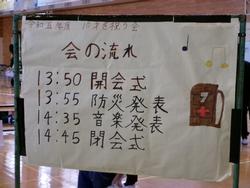 令和五年度 10才を祝う会
会の流れ
13:50 開会式
13:55 防災発表
14:35 音楽発表
14:45 閉会式